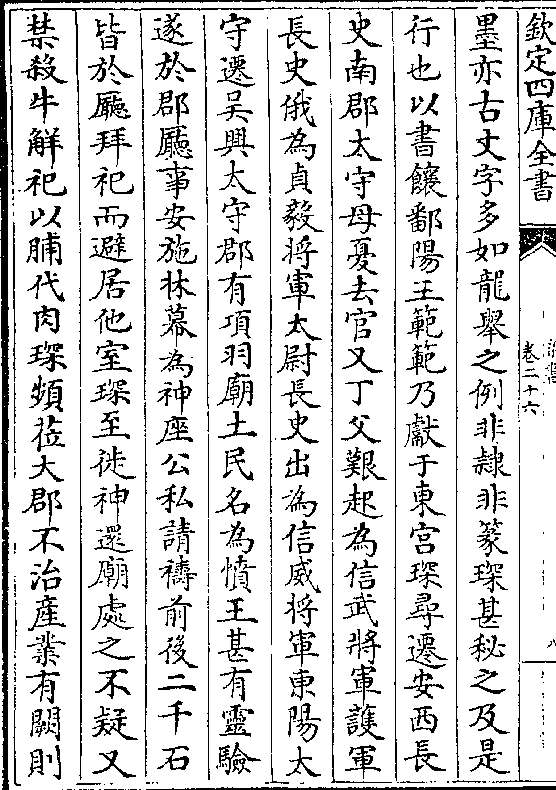 欽定四庫全書
卷二十六
八
墨亦古丈字多如龍舉之例非隷非篆琛甚秘之及是
行也以書饟鄱陽王範範乃獻于東宮琛尋遷安西長
史南郡太守母憂去官又丁父艱起為信武將軍護軍
長史俄為貞毅將軍太尉長史出為信威将軍東陽太
守遷吳興太守郡有項羽廟土民名為憤王甚有靈驗
遂於郡廳事安施牀幕為神座公私請禱前後二千石
皆於廳拜祀而避居他室琛至徙神還廟處之不疑又
禁殺牛解祀以脯代肉琛頻莅大郡不治産業有闕則